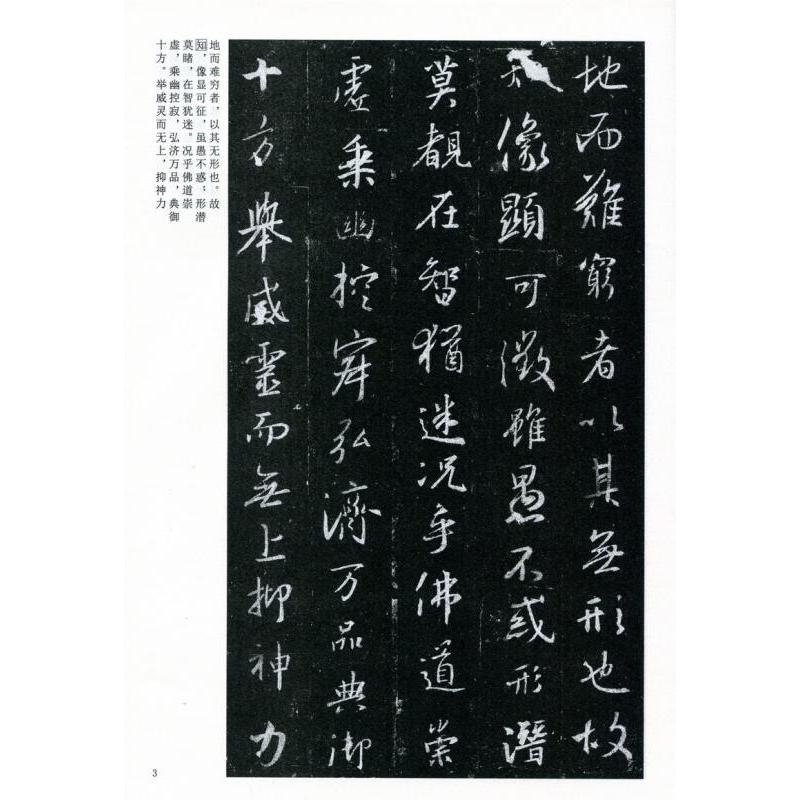 地而難窮者以其無形也故
知像顯可徵雖愚不惑形潛
莫覩在智猶迷况乎佛道崇
虛乘幽控寂弘濟万品典御
十方舉威靈而無上抑神力
地而难穷者，以其无形也。故
知，像显可征，虽愚不惑；形潜
莫睹，在智犹迷。况乎佛道崇
虚，乘幽控寂，弘济万品，典御
十方。举威灵而无上，抑神力
3